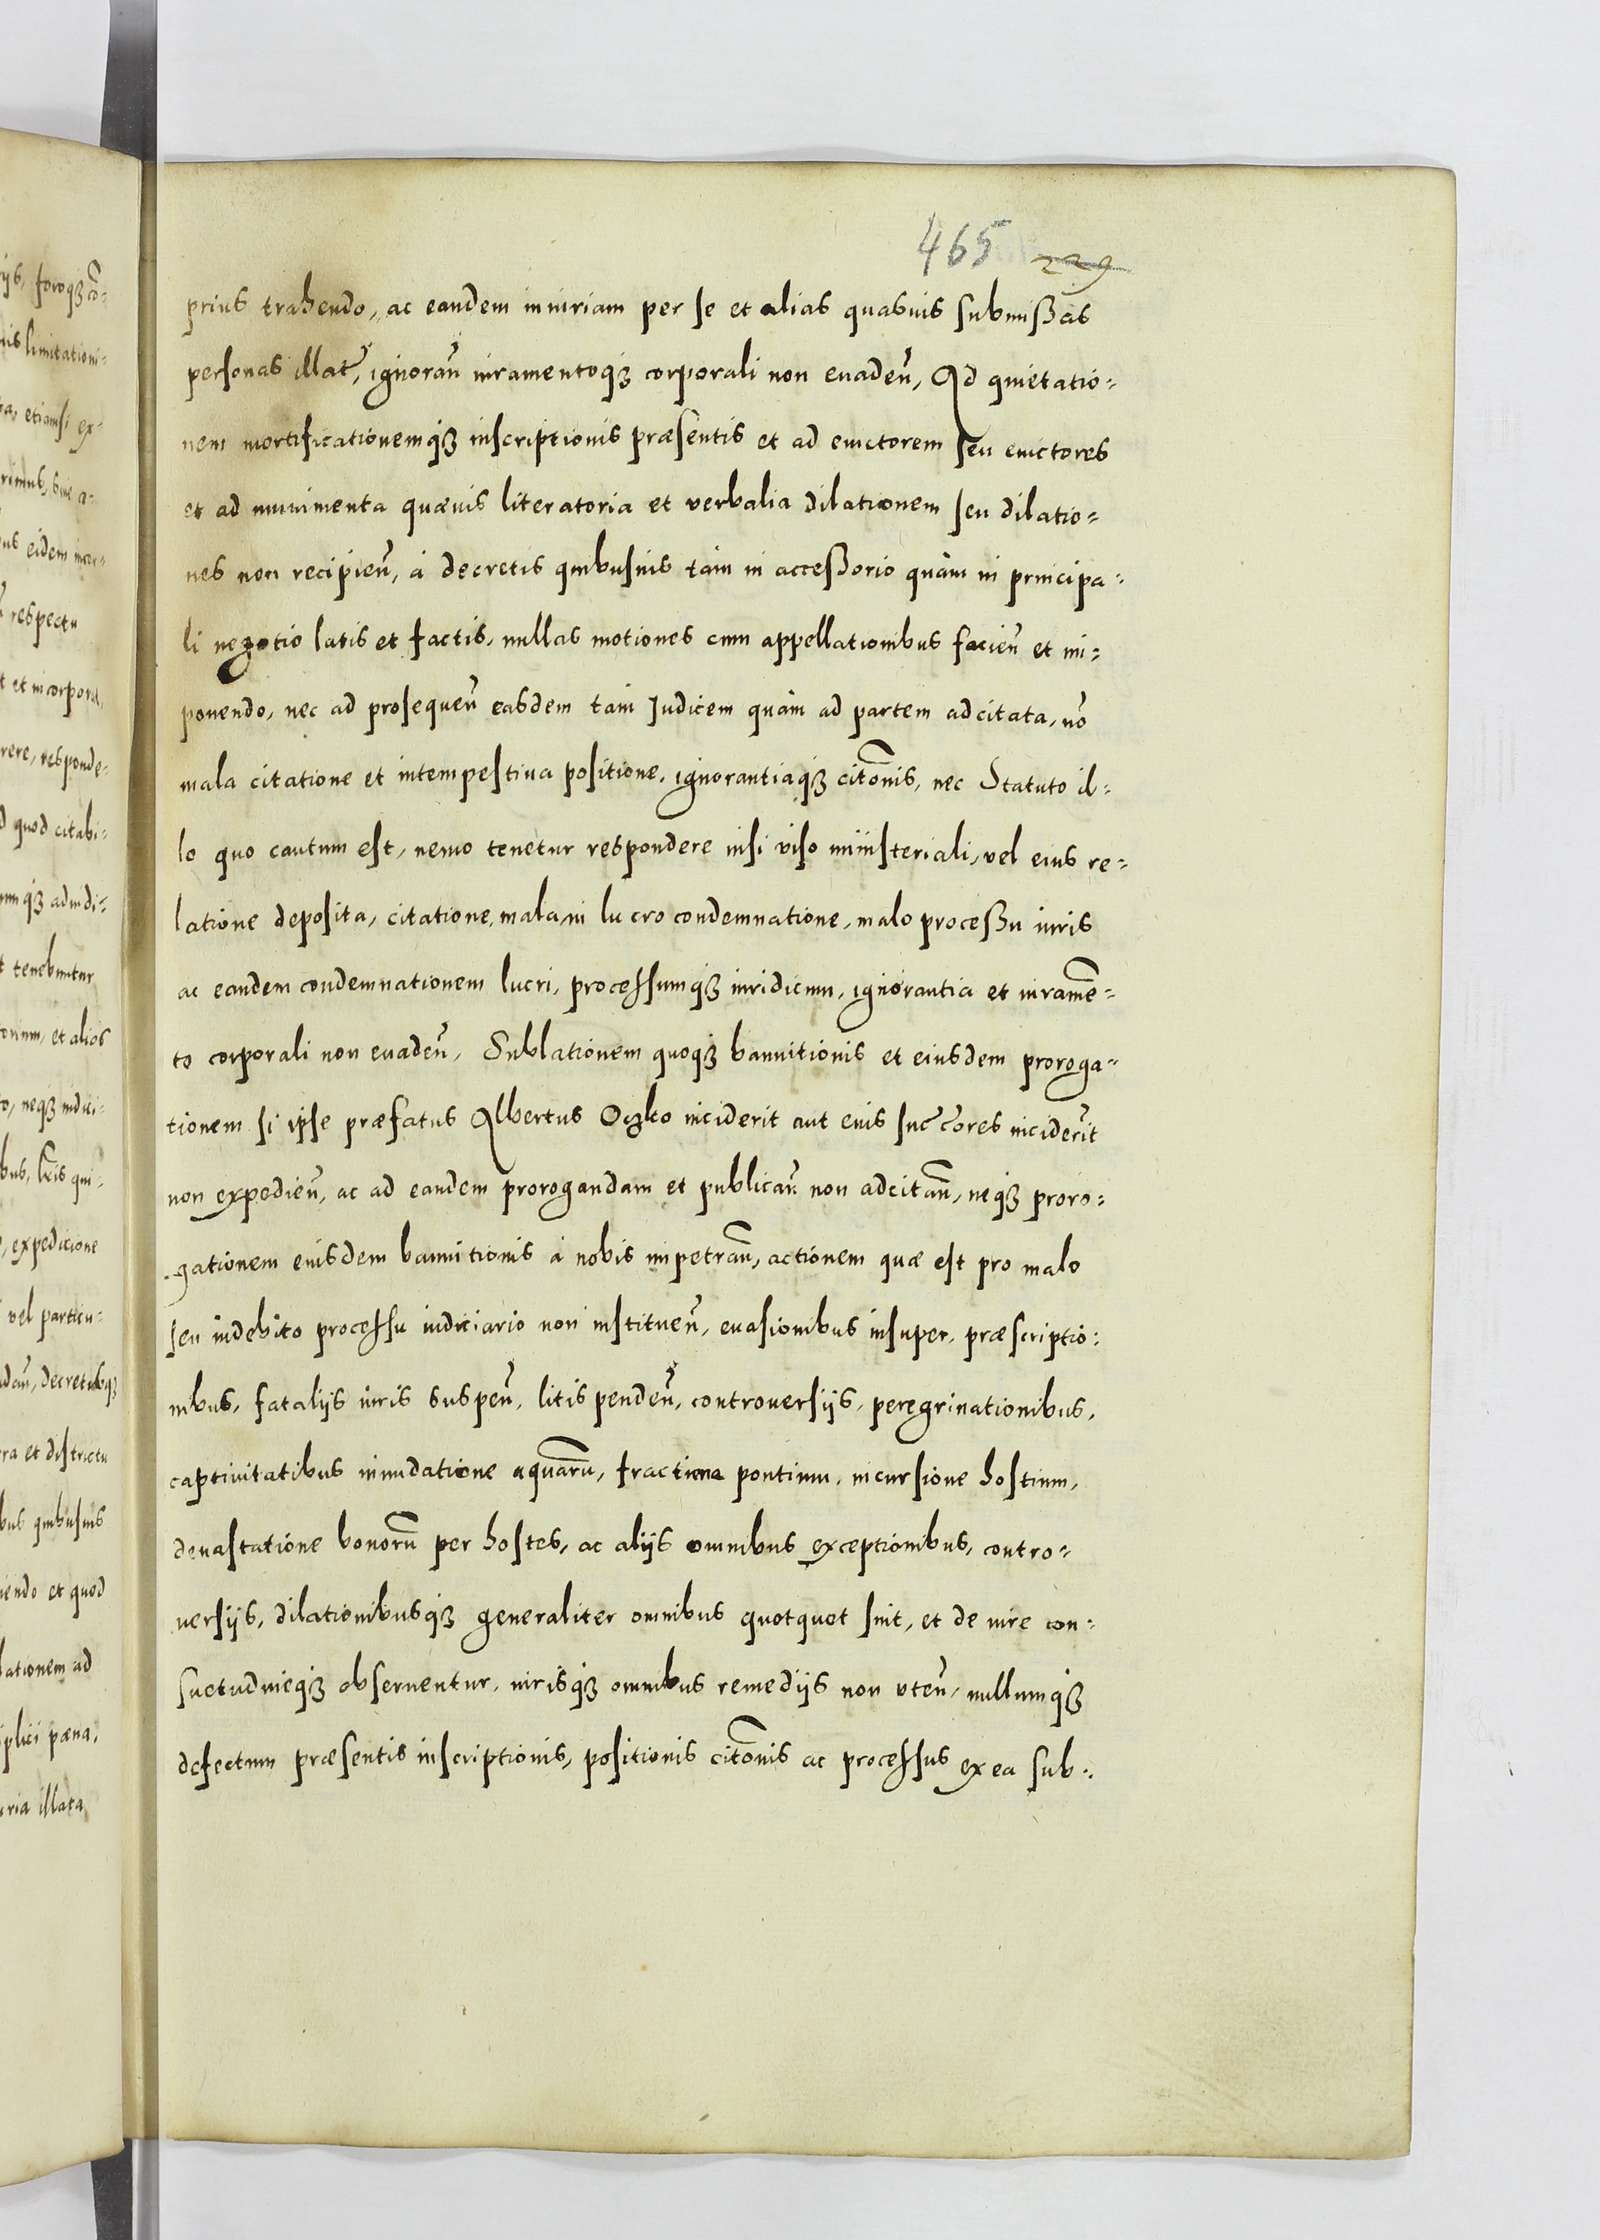 465 229
prius trahendo, ac eandem iniuriam per se et alias quasuis submißas
personas illat̃, ignorañ iuramentoq₃ corporali non euadeñ, Ad quietatio=
nem mortificationemq₃ inscriptionis præsentis et ad euictorem seu euictores
et ad munimenta quæuis literatoria et verbalia dilationem seu dilatio=
nes non recipieñ, à decretis quibusuis tàm in acceßorio quàm in principa=
li negotio latis et factis, nullas motiones cum appellationibus facieñ et im=
ponendo, nec ad prosequeñ easdem tàm Iudicem quàm ad partem adcitata, nõ
mala citatione et intempestiua positione, ignorantiaq₃ citõnis, nec Statuto il=
lo quo cautum est, nemo tenetur respondere nisi viso ministeriali, vel eius re=
latione deposita, citatione, mala, in lucro condemnatione, malo proceßu iuris
ac eandem condemnationem lucri, processumq₃ iuridicum, ignorantia et iuramẽ=
to corporali non euadeñ, Sublationem quoq₃ bannitionis et eiusdem proroga=
tionem si ipse præfatus Albertus Oczko inciderit aut eius succ̃ores inciderĩt
non expedieñ, ac ad eandem prorogandam et publicañ non adcitañ, neq₃ proro=
gationem eiusdem bannitionis à nobis impetrañ, actionem quæ est pro malo
seu indebito processu iudiciario non instituen̄, euasionibus insuper, præscriptio=
nibus, fatalijs iuris suspeñ, litis pendeñ, controuersijs, peregrinationibus,
captiuitatibus inundatione aquarũ, fractione pontium, incursione hostium,
deuastatione bonorũ per hostes, ac alijs omnibus exceptionibus, contro=
uersijs, dilationibusq₃ generaliter omnibus quotquot sint, et de iure con=
suetudineq₃ obseruentur, iurisq₃ omnibus remedijs non vteñ, nullumq₃
defectum præsentis inscriptionis, positionis citõnis ac processus ex ea sub=